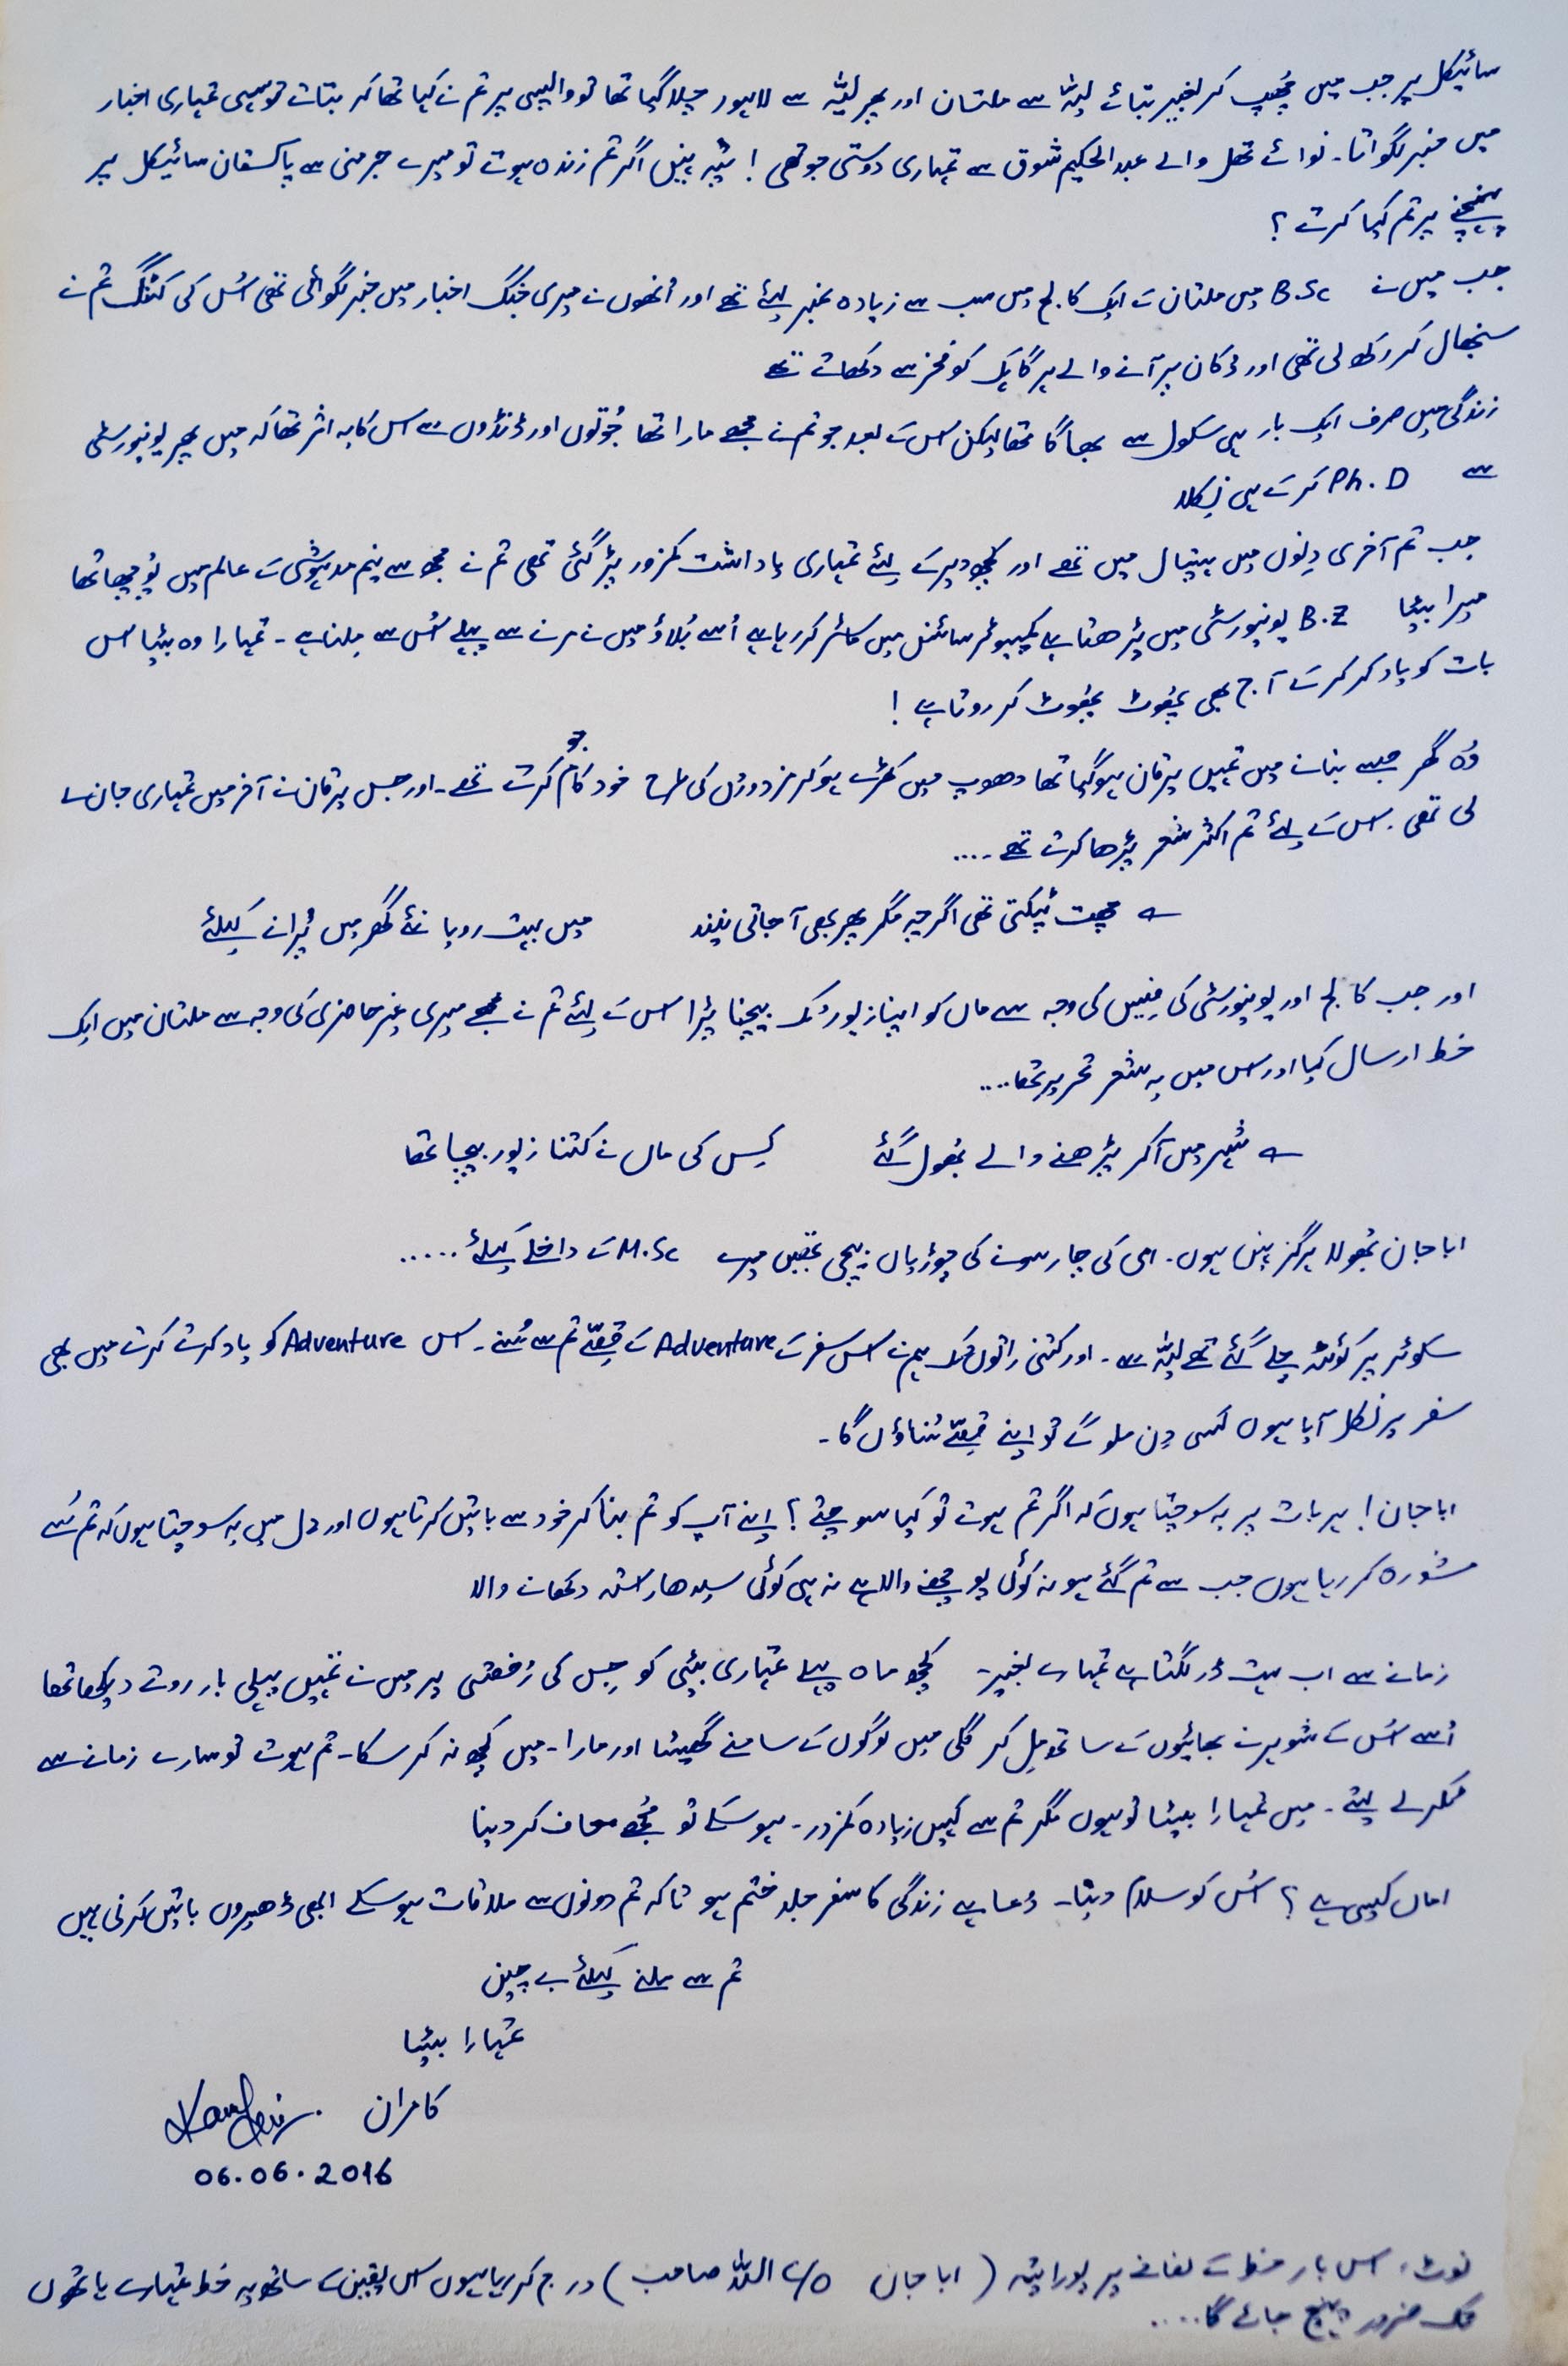 سائیکل پر جب میں چُھپ کر بغیر بتائے لیّہ سے ملتان اور پھر لیّہ سے لاہور چلا گیا تھا تو واپسی پر تم نے کہا تھا کہ بتاتے تو سہی تمہاری اخبار
میں خبر لگواتا۔ نوائے تھل والے عبدالحکیم شوق سے تمہاری دوستی جو تھی ! پتہ نہیں اگر تم زندہ ہوتے تو میرے جرمنی سے پاکستان سائیکل پر
پہنچنے پر تم کیا کرتے ؟
جب میں نے B.Sc میں ملتان کے ایک کالج میں سب سے زیادہ نمبر لیئے تھے اور اُنھوں نے میری جنگ اخبار میں خبر لگوائی تھی اُس کی کٹنگ تم نے
سنبھال کر رکھ لی تھی اور دُکان پر آنے والے ہر گاہک کو فخر سے دکھاتے تھے
زندگی میں صرف ایک بار ہی سکول سے بھاگا تھا لیکن اس کے بعد جو تم نے مجھے مارا تھا جُوتوں اور ڈنڈوں سے اس کا یہ اثر تھا کہ میں پھر یونیورسٹی
سے Ph.D کر کے ہی نِکلا
جب تم آخری دِنوں میں ہسپتال میں تھے اور کچھ دیر کے لیئے تمہاری یاداشت کمزور پڑ گئی تھی تم نے مجھ سے نیم مدہوشی کے عالم میں پُوچھا تھا
میرا بیٹا B.Z یونیورسٹی میں پڑھتا ہے کمپیوٹر سائنس میں ماسٹر کر رہا ہے اُسے بُلاؤ میں نے مرنے سے پہلے اُس سے مِلنا ہے ۔ تمہارا وہ بیٹا اس
بات کو یاد کر کر کے آج بھی پھُوٹ پھُوٹ کر روتا ہے !
وُہ گھر جسے بنانے میں تمہیں یرقان ہو گیا تھا دھوپ میں کھڑے ہو کر مزدوروں کی طرح خود جو کام کرتے تھے۔ اور جس یرقان نے آخر میں تمہاری جان لے
لی تھی۔ اس کے لئے تم اکثر شعر پڑھا کرتے تھے ....
؎ چھت ٹپکتی تھی اگرچہ مگر پھر بھی آ جاتی نیند میں بہت رویا نئے گھر میں پُرانے کیلئے
اور جب کالج اور یونیورسٹی کی فِیس کی وجہ سے ماں کو اپنا زیور تک بیچنا پڑا اس کے لیئے تم نے مجھے میری غیر حاضری کی وجہ سے ملتان میں ایک
خط ارسال کیا اور اس میں یہ شعر تحریر تھا ....
؎ شہر میں آ کر پڑھنے والے بھُول گئے کِس کی ماں نے کتنا زیور بیچا تھا
ابا جان بھُولا ہرگز نہیں ہوں۔ امی کی چار سونے کی چوڑیاں بیچی تھیں میرے M.Sc کے داخلے کیلئے .....
سکوٹر پر کوئٹہ چلے گئے تھے لیّہ سے ۔ اور کتنی راتوں تک ہم نے اس سفر کے Adventure کے قِصّے تم سے سُنے۔ اس Adventure کو یاد کرتے کرتے میں بھی
سفر پر نکل آیا ہوں کسی دِن ملو گے تو اپنے قِصّے سُناؤں گا۔
ابا جان ! ہر بات پر یہ سوچتا ہوں کہ اگر تم ہوتے تو کیا سوچتے ؟ اپنے آپ کو تم بنا کر خود سے باتیں کرتا ہوں اور دل میں یہ سوچتا ہوں کہ تم سے
مشورہ کر رہا ہوں جب سے تم گئے ہو نہ کوئی پوچھنے والا ہے نہ ہی کوئی سیدھا راستہ دکھانے والا
زمانے سے اب بہت ڈر لگتا ہے تمہارے بغیر۔ کچھ ماہ پہلے تمہاری بیٹی کو جِس کی رُخصتی پر میں نے تمہیں پہلی بار روتے دیکھا تھا
اُسے اُس کے شوہر نے بھائیوں کے ساتھ مِل کر گلی میں لوگوں کے سامنے گھسیٹا اور مارا۔ میں کچھ نہ کر سکا۔ تم ہوتے تو سارے زمانے سے
ٹکر لے لیتے ۔ میں تمہارا بیٹا تو ہوں مگر تم سے کہیں زیادہ کمزور۔ ہو سکے تو مجھے معاف کر دینا
اماں کیسی ہے ؟ اُس کو سلام دینا۔ دُعا ہے زندگی کا سفر جلد ختم ہو تاکہ تم دونوں سے ملاقات ہو سکے ابھی ڈھیروں باتیں کرنی ہیں
تم سے ملنے کیلئے بے چین
تمہارا بیٹا
کامران
06.06.2016
نوٹ، اس بار خط کے لفافے پر پورا پتہ ( ابا جان c/o اللہ صاحب ) درج کر رہا ہوں اس یقین کے ساتھ یہ خط تمہارے ہاتھوں
تک ضرور پہنچ جائے گا ....